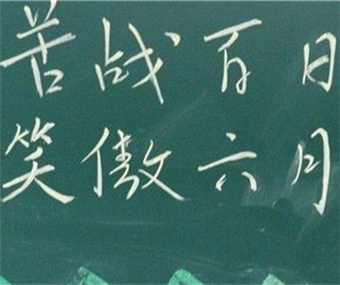 苦战百日
笑傲六月